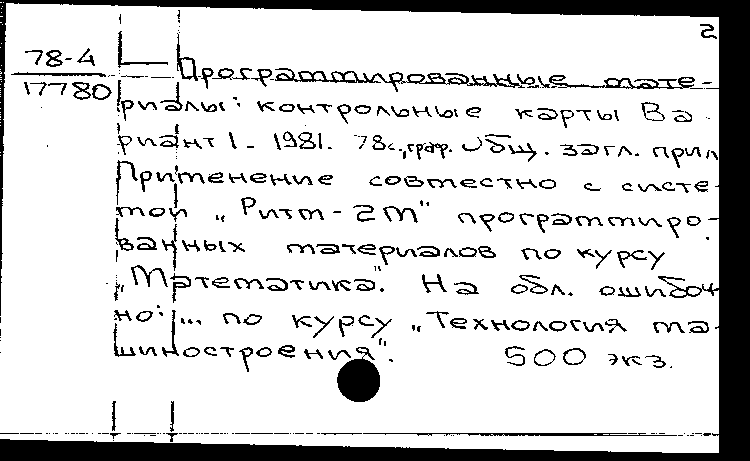 2
78-4
17780
— Программированные мате-
риалы: контрольные карты Ва
риант 1. 1981. 78с., граф. Общ. загл. прил
Применение совместно с систе
мой „Ритм-2М" программиро-
ванных материалов по курсу
„Математика". На обл. ошибоч
но: ... по курсу „Технология ма-
шиностроения". 500 экз.